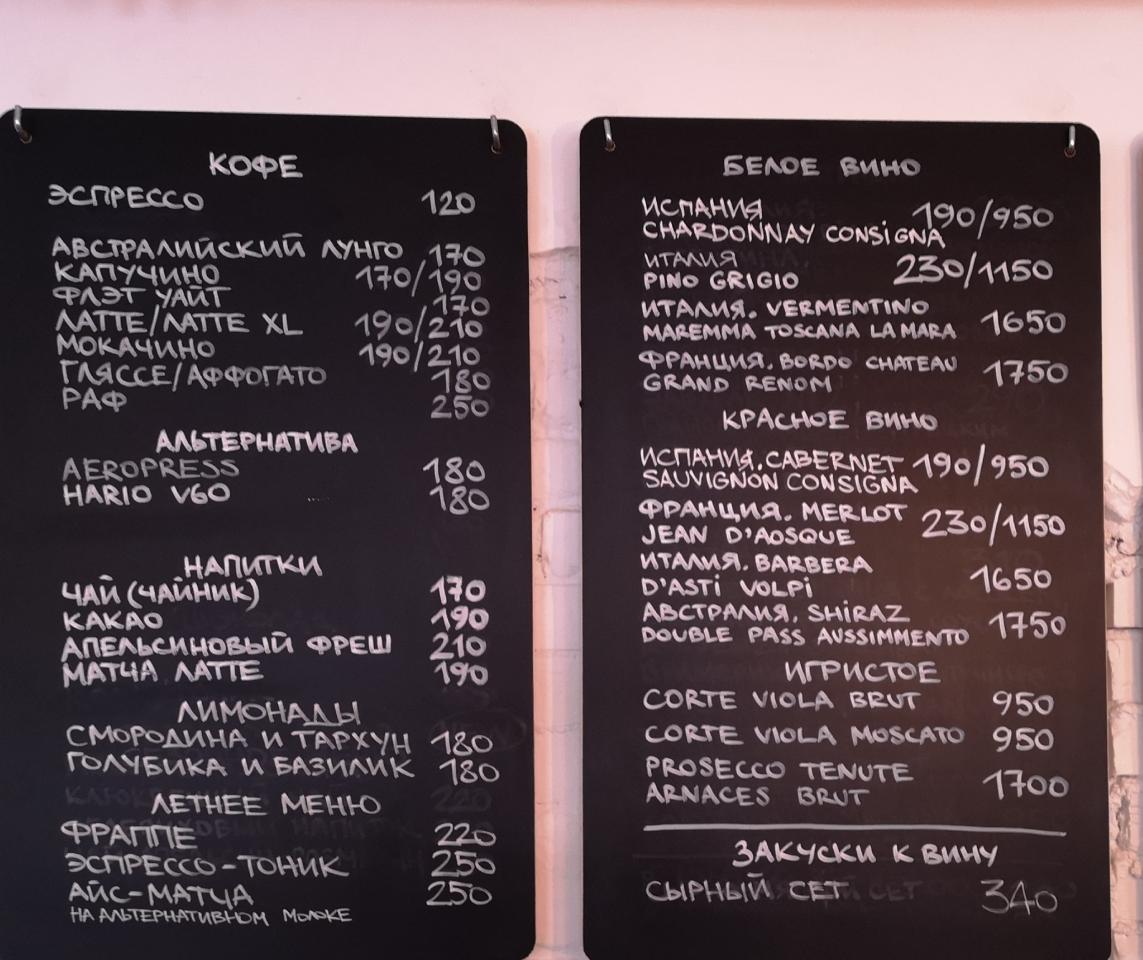 КОФЕ
ЭСПРЕССО 120
АВСТРАЛИЙСКИЙ ЛУНГО 170
КАПУЧИНО 170/190
ФЛЭТ УАЙТ 170
ЛАТТЕ/ЛАТТЕ XL 190/210
МОКАЧИНО 190/210
ГЛЯССЕ/АФФОГАТО 180
РАФ 250
АЛЬТЕРНАТИВА
AEROPRESS 180
HARIO V60 180
НАПИТКИ
ЧАЙ (ЧАЙНИК) 170
КАКАО 190
АПЕЛЬСИНОВЫЙ ФРЕШ 210
МАТЧА ЛАТТЕ 190
ЛИМОНАДЫ
СМОРОДИНА И ТАРХУН 180
ГОЛУБИКА И БАЗИЛИК 180
ЛЕТНЕЕ МЕНЮ
ФРАППЕ 220
ЭСПРЕССО-ТОНИК 250
АЙС-МАТЧА 250
НА АЛЬТЕРНАТИВНОМ МОЛОКЕ
БЕЛОЕ ВИНО
ИСПАНИЯ 190/950
CHARDONNAY CONSIGNA
ИТАЛИЯ 230/1150
PINO GRIGIO
ИТАЛИЯ. VERMENTINO 1650
MAREMMA TOSCANA LA MARA
ФРАНЦИЯ. BORDO CHATEAU 1750
GRAND RENOM
КРАСНОЕ ВИНО
ИСПАНИЯ. CABERNET 190/950
SAUVIGNON CONSIGNA
ФРАНЦИЯ. MERLOT 230/1150
JEAN D'AOSQUE
ИТАЛИЯ. BARBERA 1650
D'ASTI VOLPI
АВСТРАЛИЯ. SHIRAZ 1750
DOUBLE PASS AUSSIMMENTO
ИГРИСТОЕ
CORTE VIOLA BRUT 950
CORTE VIOLA MOSCATO 950
PROSECCO TENUTE 1700
ARNACES BRUT
ЗАКУСКИ К ВИНУ
СЫРНЫЙ СЕТ 340